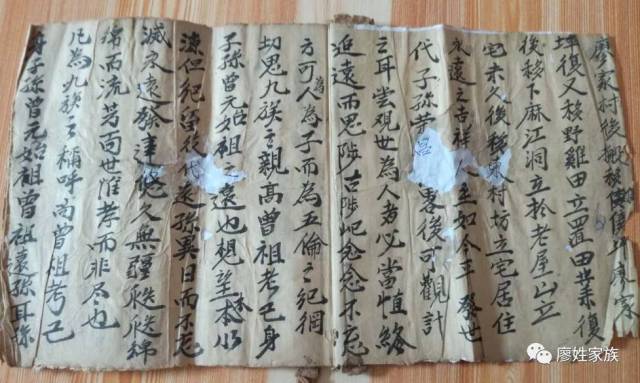 廖家村後搬移
坪復又移野雞田立置田業復
後移下麻江洞立於老屋山立
宅未久後移
村坊立宅居住
永遠之吉祥
至如今乎發世
代子孫昔
畧後可觀計
云耳尝观世為人者必當恒終
追遠而思陟古陟屺念念不忘
方可人為子而為五倫之纪綱
切思九族之親髙曾祖考己身
子孫曾元始祖之遠也想
本
源但纪
後代遠孫異日而不忘
滅永遠發達悠久無疆
綿而流芳百世惟孝而非尽也
凡為九族之稱呼尚曾祖考己
身子孫曾元始祖曽祖遠孫耳孫
廖姓家族